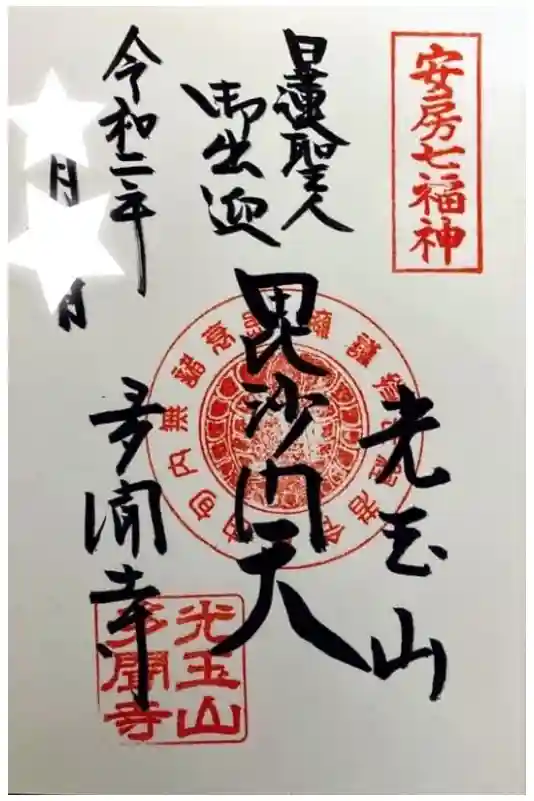 安房七福神
日蓮聖人
御出迎
毘沙门天
光玉山
令和二年
月
月
多聞寺
光玉山
多聞寺